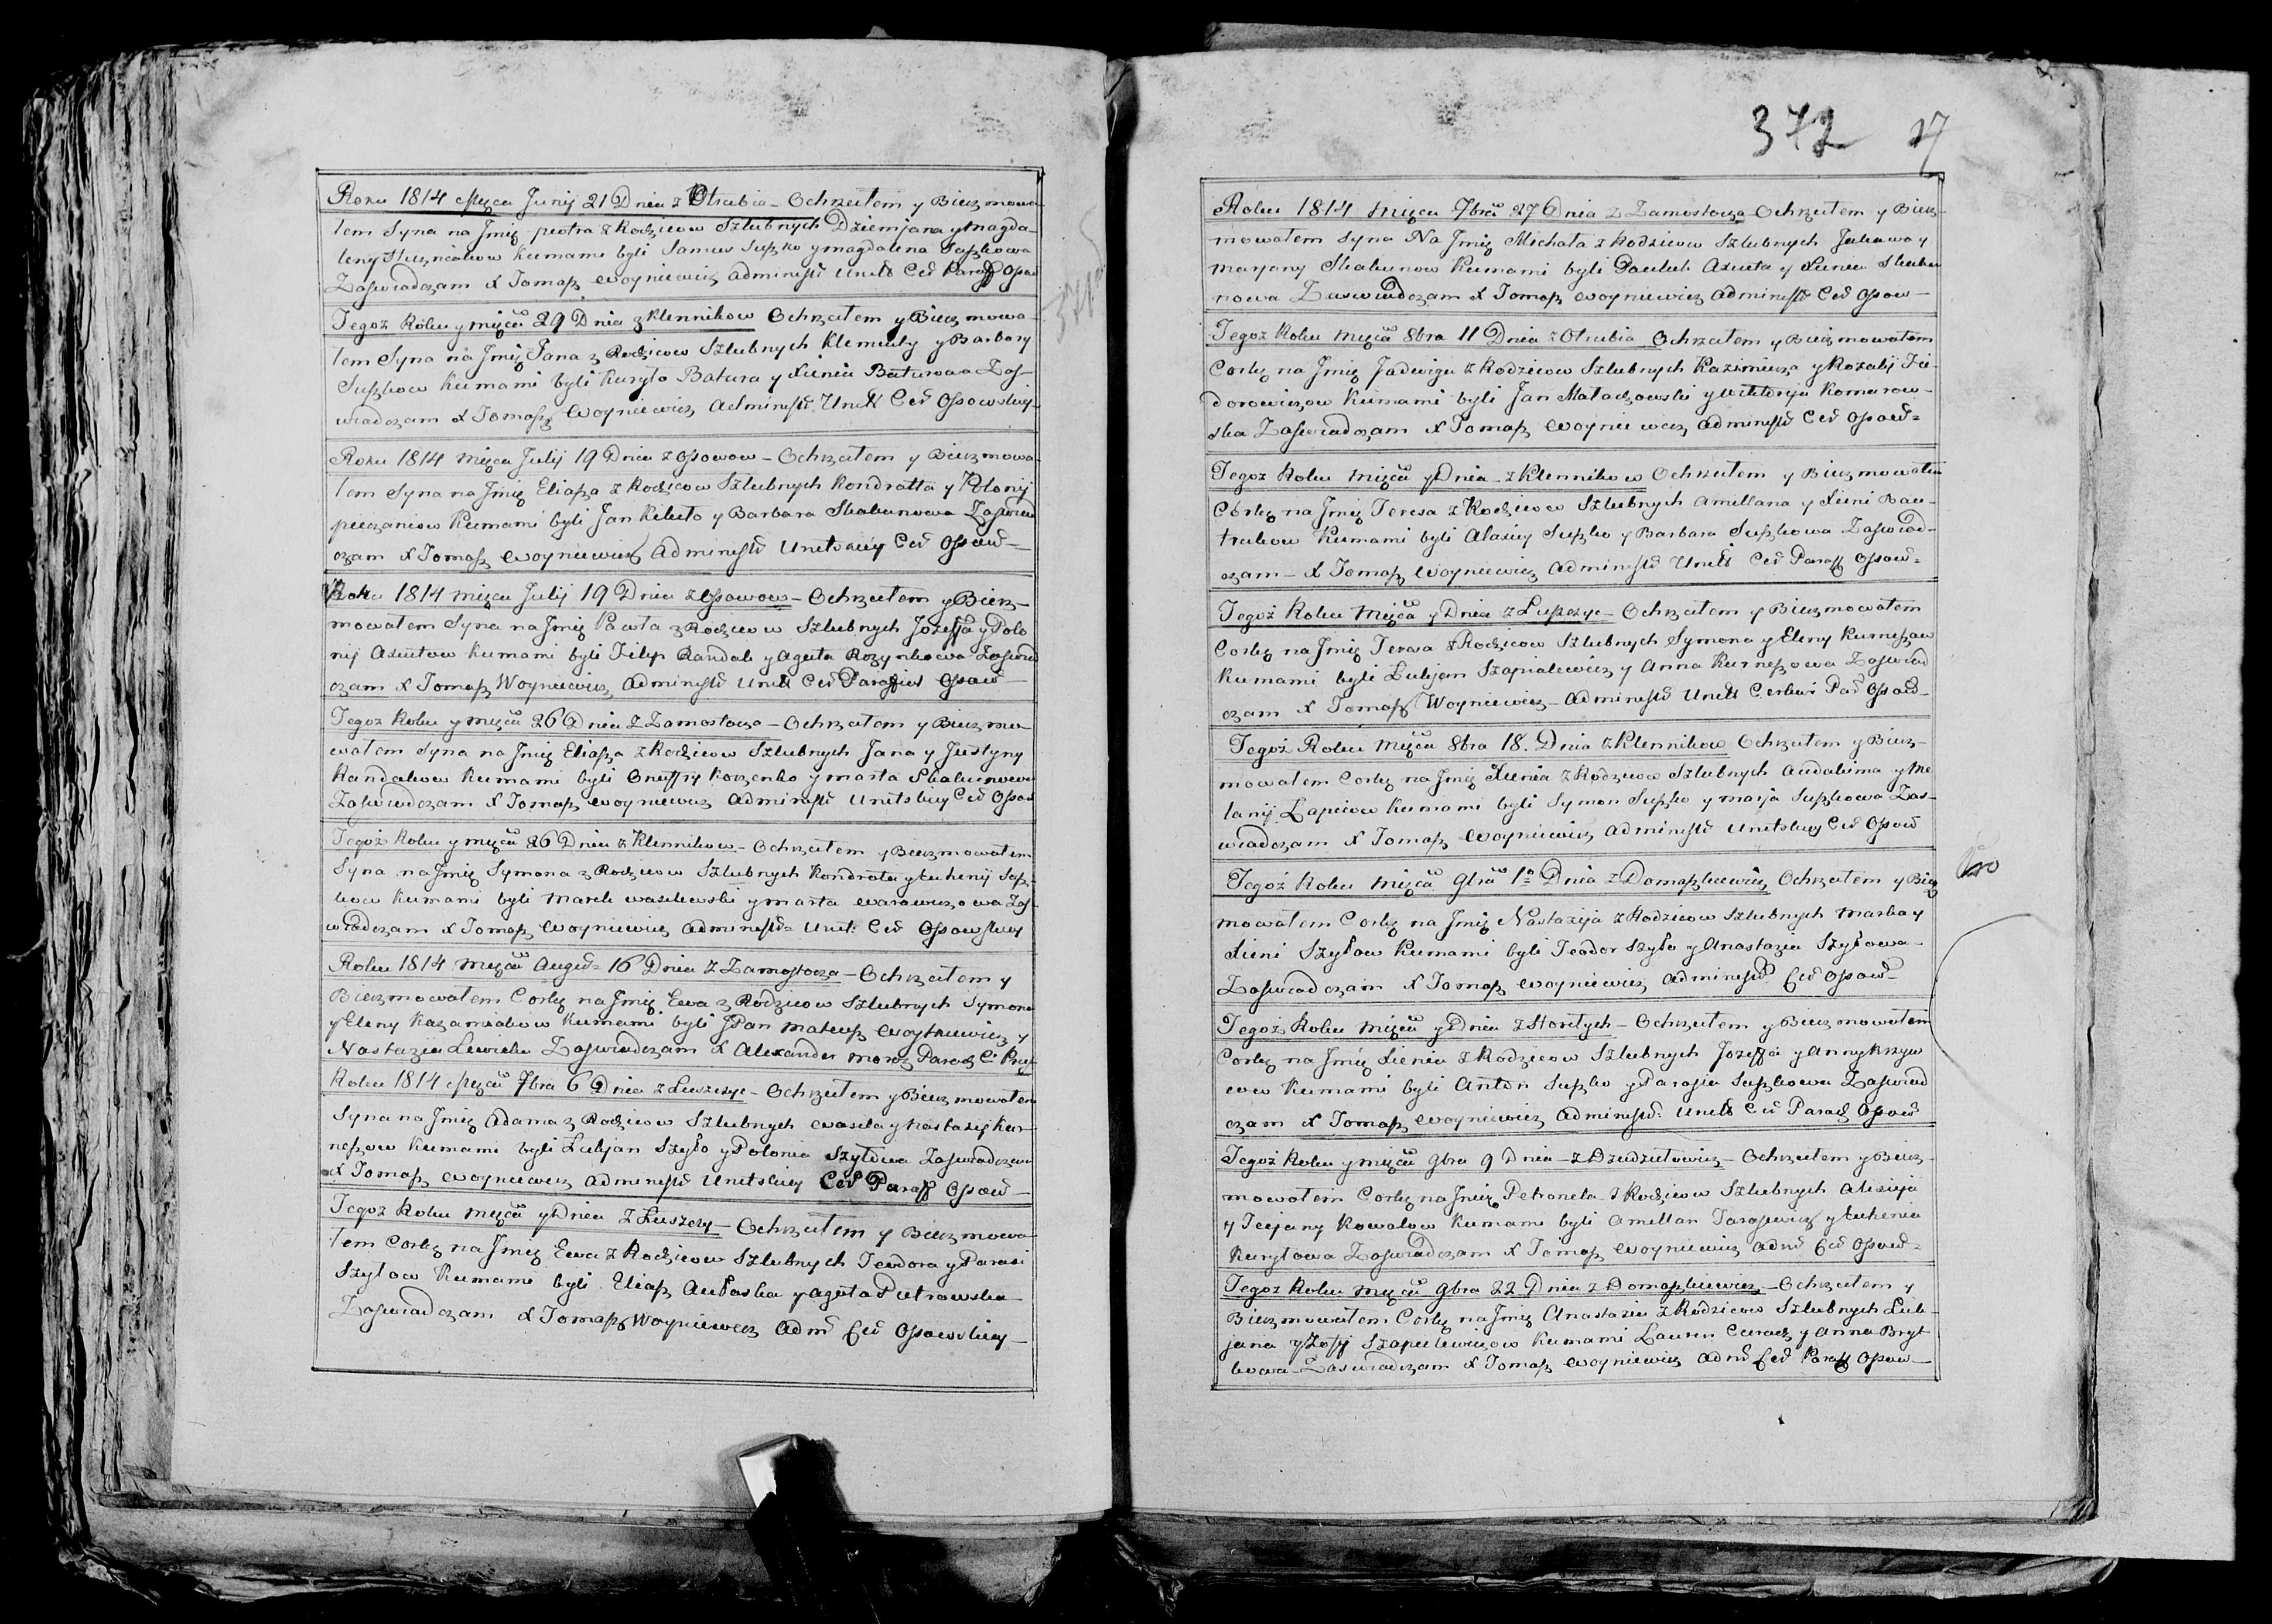 Roku 1814 Mięca Junij 21 Dnia z Otrubia – Ochrzciłem y Bierzmowa-
łem Syna na Jmię piotra z Rodzicow Szlubnych Dziemjana y magda-
leny Kumami byli Supko y magdalena Supkowa
Zaświadczam X Tomaß Woyniewicz Administr Unitt Cer Paraff Ossow
Tegoż Roku y mięca 29 Dnia z Klennikow Ochrzciłem y Bierzmowa-
łem Syna na Jmię Jana z Rodzicow Szlubnych Klemenly y Barbary
Supkow Kumami byli Kuryło Batura y Xienia Baturowa Zaś-
wiadczam X Tomaß Woyniewicz Administr Unitt Cer Ossowskiey
Roku 1814 mięca Julij 19 Dnia z Ossowow – Ochrzciłem y Bierzmowa-
łem Syna na Jmię Eliaßa z Rodzicow Szlubnych Kondratta y Polonij
Kumami byli Jan y Barbara Skakunowa Zaświad
czam X Tomaß Woyniewicz Administr Unitskiey Cer Ossow–
Roku 1814 mięca Julij 19 Dnia z Ossowow – Ochrzciłem y Bierz-
mowałem Syna na Jmię Pawła z Rodzicow Szlubnych Jozeffa y Polo
nij Axiutow Kumami byli Filip Randak y Agata Zaświad
czam X Tomaß Woyniewicz Administr Unitt Cer Paraffiot Ossow
Tegoż Roku y mięca 26 Dnia z Zamostocza – Ochrzciłem y Bierzmo-
wałem Syna na Jmię Eliaßa z Rodzicow Szlubnych Jana y Justyny
Randakow Kumami byli Onuffry Korzenko y marta Skakunowa
Zaświadczam X Tomaß Woyniewicz Administr Unitskiey Cer Ossow
Tegoż Roku y mięca 26 Dnia z Klennikow – Ochrzciłem y Bierzmowałem
Syna na Jmię Symona z Rodzicow Szlubnych Kondrata y Euhenij Sup-
kow Kumami byli Marek y marta Zaś-
wiadczam X Tomaß Woyniewicz Administr Unit: Cer Ossowskiey
Roku 1814 mięca Augu= 16 Dnia z Zamostocza – Ochrzciłem y
Bierzmowałem Corkę na Jmię Ewa z Rodzicow Szlubnych Symona
y Eleny Kumami byli JPan Mateusz Woytkiewicz y
Nastazia Zaświadczam X Alexander Moroz
Roku 1814 Mięca 7bra 6 Dnia z Łuszczyc – Ochrzciłem y Bierzmowałem
Syna na Jmię Adama z Rodzicow Szlubnych Wasila y Nastazij Kur-
neßow Kumami byli Lukjan Szyło y Polonia Szyłowa Zaświadczam
X Tomaß Woyniewicz Administr Unitskiey Cer Paraff Ossow–
Tegoż Roku mięca y Dnia z Łuszczyc – Ochrzciłem y Bierzmowa-
łem Corkę na Jmię Ewa z Rodzicow Szlubnych Teodora y Parasi
Szyłow Kumami byli Eliaß y Agata Pietrowska
Zaświadczam X Tomaß Woyniewicz Adm Cer Ossowskiey –
372 27
Roku 1814 Mięca 7bra 27 Dnia z Zamostocza Ochrzciłem y Bierz-
mowałem Syna Na Jmię Michała z Rodzicow Szlubnych y
Maryany Skakunow Kumami byli Pauluk Axiuta y Xienia Skaku
nowa Zaswiadczam X Tomaß Woyniewicz Administr Cer Ossow–
Tegoż Roku Mięca 8bra 11 Dnia z Otrubia Ochrzciłem y Bierzmowałem
Corkę na Jmię Jadwiga z Rodzicow Szlubnych Kazimierza y Rozalij Fie-
dorowiczow Kumami byli Jan y Wiktorija Komarow-
ska Zaświadczam X Tomaß Woyniewicz Administr Cer Ossow=
Tegoż Roku Mięca y Dnia – z Klennikow Ochrzciłem y Bierzmowałem
Corkę na Jmię Teresa z Rodzicow Szlubnych Amillana y Xieni Bau-
trukow Kumami byli Alaxiey Supko y Barbara Supkowa Zaświad-
czam – X Tomaß Woyniewicz Administr Unitt Cer Paraff Ossow=
Tegoż Roku Mięca y Dnia z Łuszczyc – Ochrzciłem y Bierzmowałem
Corkę na Jmię Teresa z Rodzicow Szlubnych Symona y Eleny Kurneßow
Kumami byli Lukjan y Anna Kurneßowa Zaświad
czam X Tomaß Woyniewicz – Administr Unitt Cerkwi Par Ossow–
Tegoż Roku Mięca 8bra 18. Dnia z Klennikow Ochrzciłem y Bierz-
mowałem Corkę na Jmię Xienia z Rodzicow Szlubnych Audakima y Me
lanij Łapciow Kumami byli Symon Supko y Marja Supkowa Zaś-
wiadczam X Tomaß Woyniewicz Administr Unitskiey Cer Ossow
Tegoż Roku Mięca 9bra 1º Dnia z Domaßkiewicz Ochrzciłem y Bierz
mowałem Corkę na Jmię Nastazija z Rodzicow Szlubnych Marka y
Xieni Szyłow Kumami byli Teodor Szyło y Anastazia Szyłowa–
Zaświadczam X Tomaß Woyniewicz Administr Cer Ossow–
Tegoż Roku Mięca y Dnia z – Ochrzciłem y Bierzmowałem
Corkę na Jmię Xienia z Rodzicow Szlubnych Jozeffa y Anny Krzyw
cow Kumami byli Anton Supko y Parasia Supkowa Zaświad
czam X Tomaß Woyniewicz Administr: Unitt Cer Paraff Ossow
Tegoż Roku y mięca 9bra 9 Dnia – z Dziudziułowicz – Ochrzciłem y Bierz-
mowałem Corkę na Jmię Petronela z Rodzicow Szlubnych Alexieja
y Tecjany Kowalow Kumami byli Amillan Tarasiewicz y Euhenia
Kuryłowa Zaświadczam X Tomaß Woyniewicz Adm Cer Ossow=
Tegoż Roku Mięca 9bra 22 Dnia z Domaßkiewicz – Ochrzciłem y
Bierzmowałem Corkę na Jmię Anastazia z Rodzicow Szlubnych Luk-
jana y Zofij Kumami y Anna
Zaswiadczam X Tomaß Woyniewicz Adm Cer Paraff Ossow–